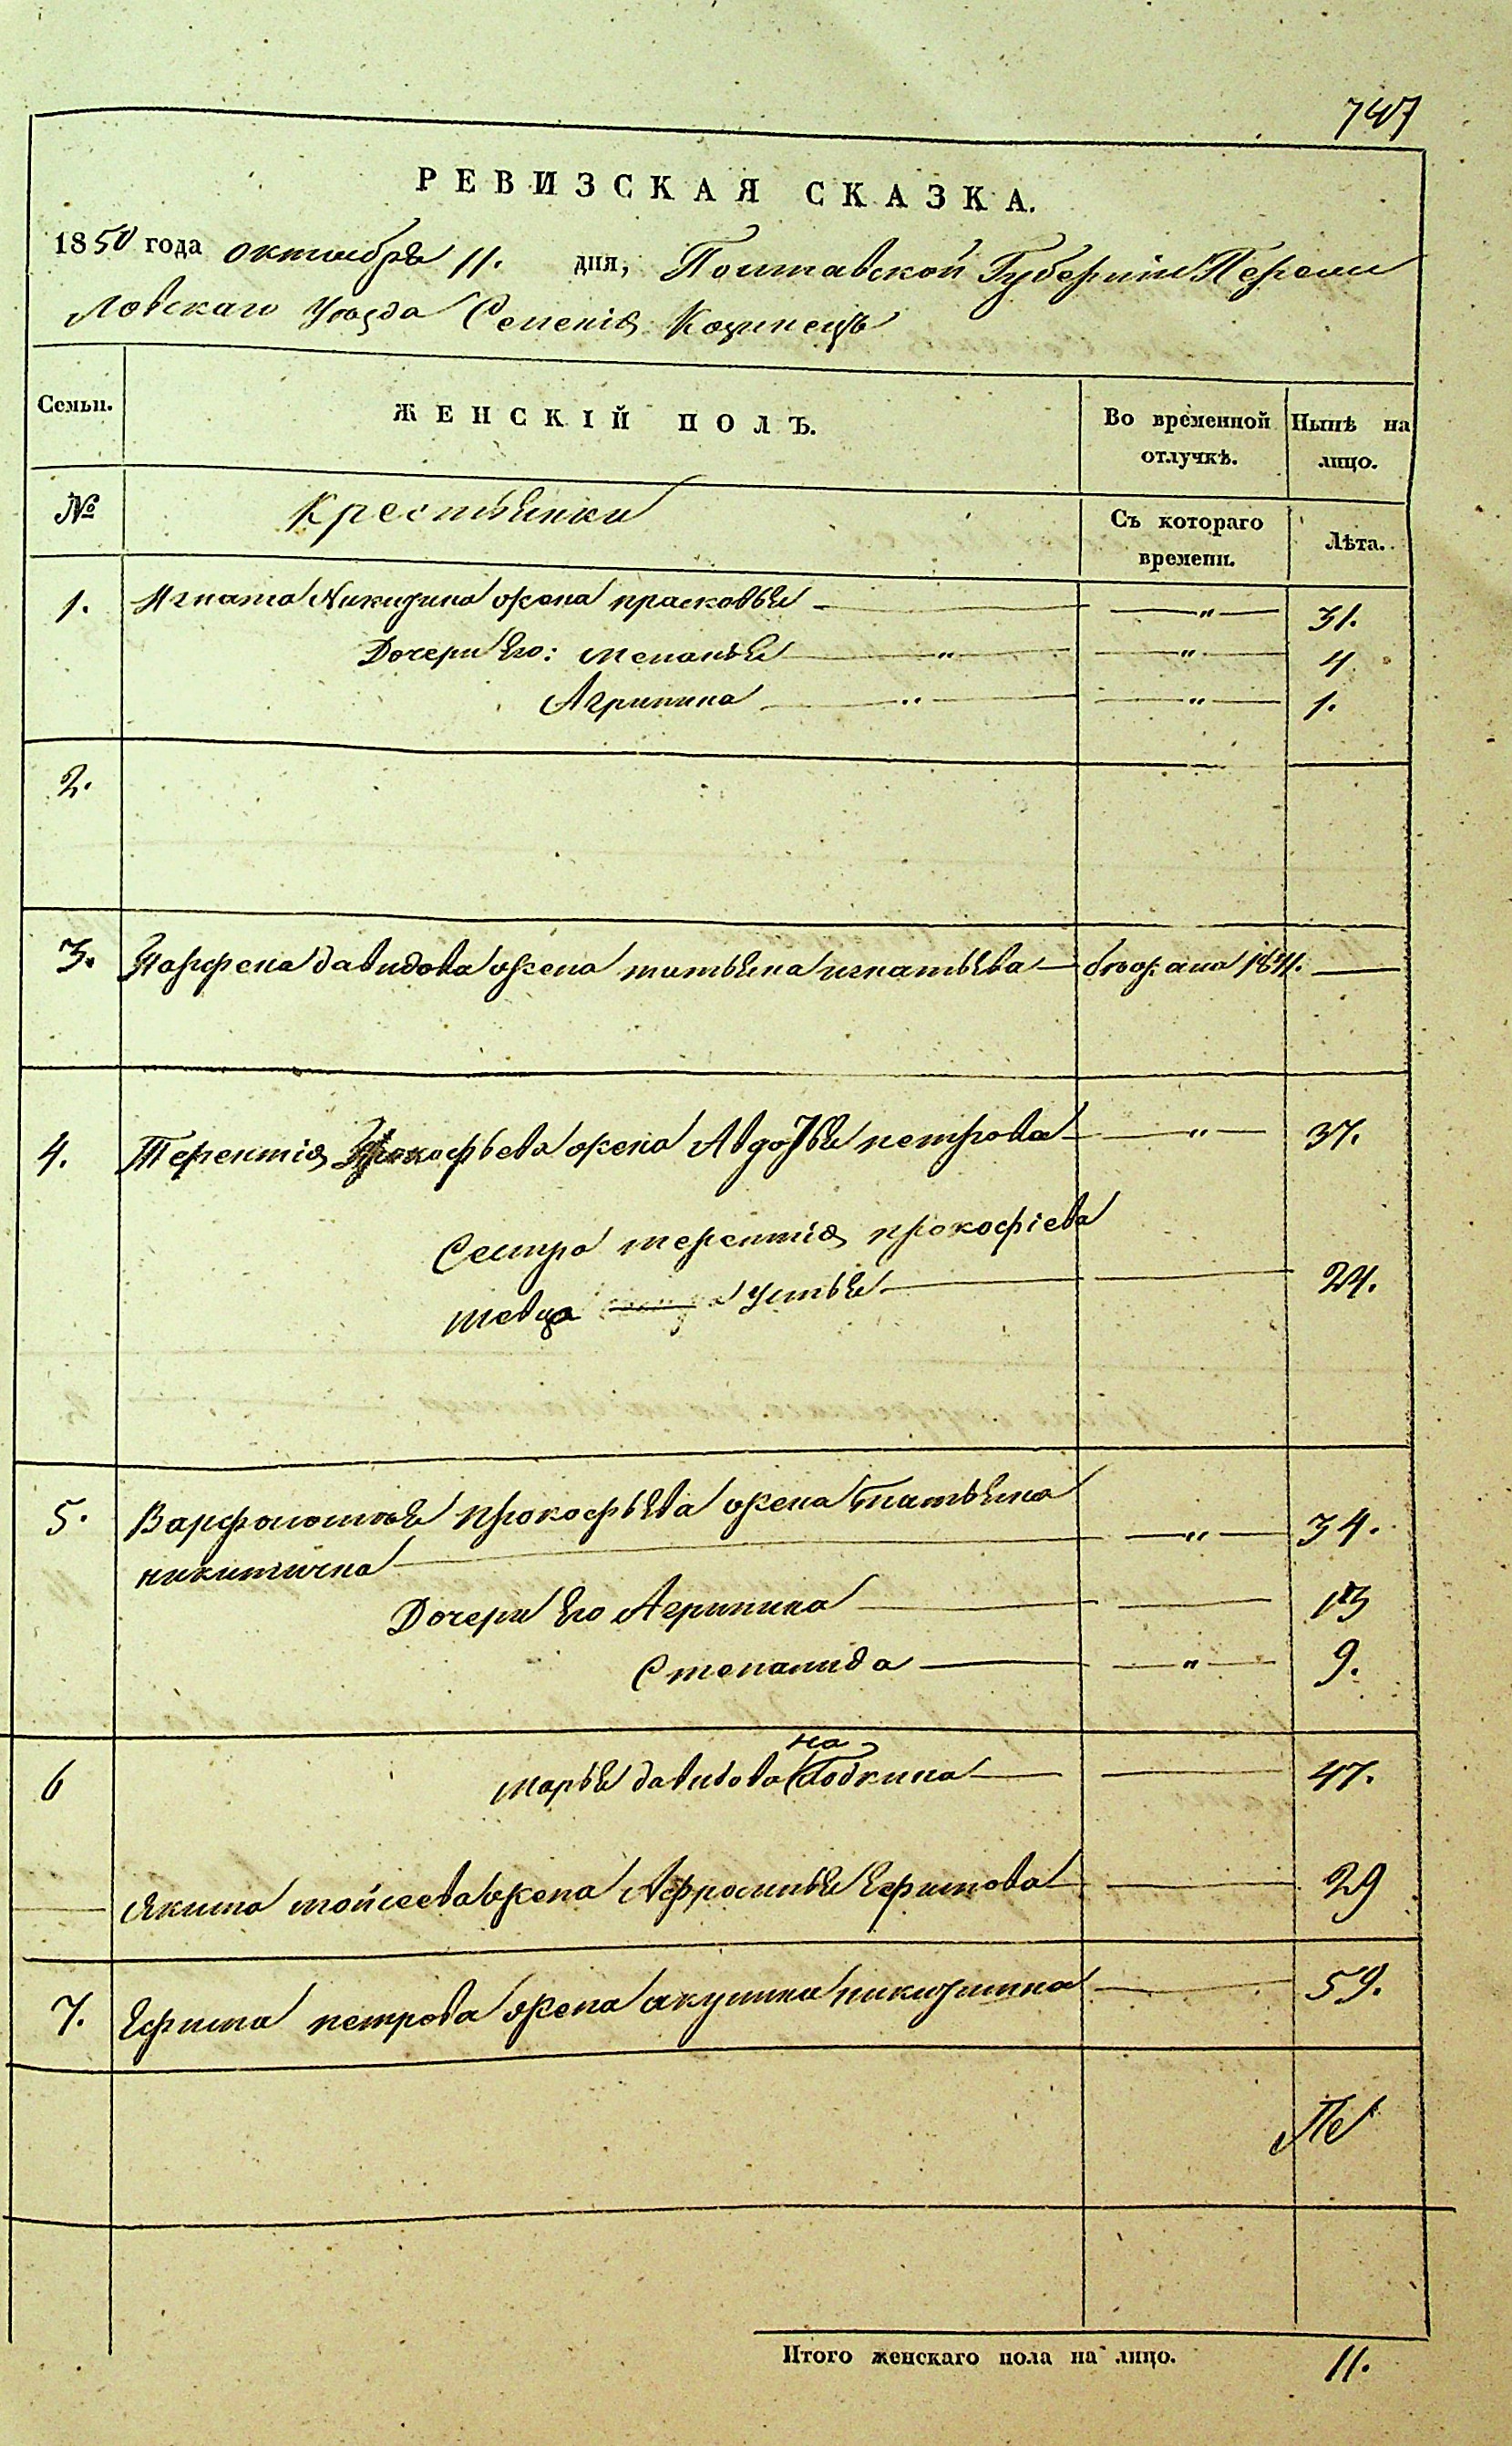 747
РЕВИЗСКАЯ СКАЗКА.
1850 года октября 11. дня, Полтавской Губерніи Переяс
ловскаго Уезда Селенія Козинець
Семьи. ЖЕНСКІЙ ПОЛЪ. Во временной отлучкѣ. Нынѣ на лицо.
№ Крестьянки Съ котораго времени. Лѣта.
1. Игната Никидина жена прасковья — " — 31.
Дочери Его: меланья — " — " — 4
Агрипина — " — " — 1.
2.
3. Парфена давидова жена татьяна игнатьева — бѣжана 1841. —
4. Терентія Прокофьева жена Авдотья петрова — " — 37.
Сестра терентія прокофіева
устья — 24.
5. Варфоломѣя прокофьева жена татьяна
никитична — " — 34.
Дочери Его Агрипина — 13
Степанида — " — 9.
на
6 марья давидова — 47.
Якима мойсеева жена Афросинья Ефимова — 29
7. Ефима петрова жена акулина — 59.
Итого женскаго пола на лицо. 11.